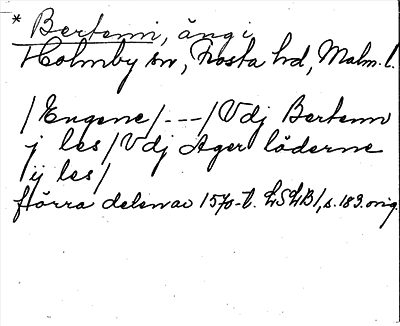 * Bertemi, äng i
Holmby sn, Frosta hd, Malm. l.
/Engene/---/Vdj Bertemi
j les/Vdj Ager löderne
ij les/
förra delen av 1570-t. LSLB1, s. 183. orig.